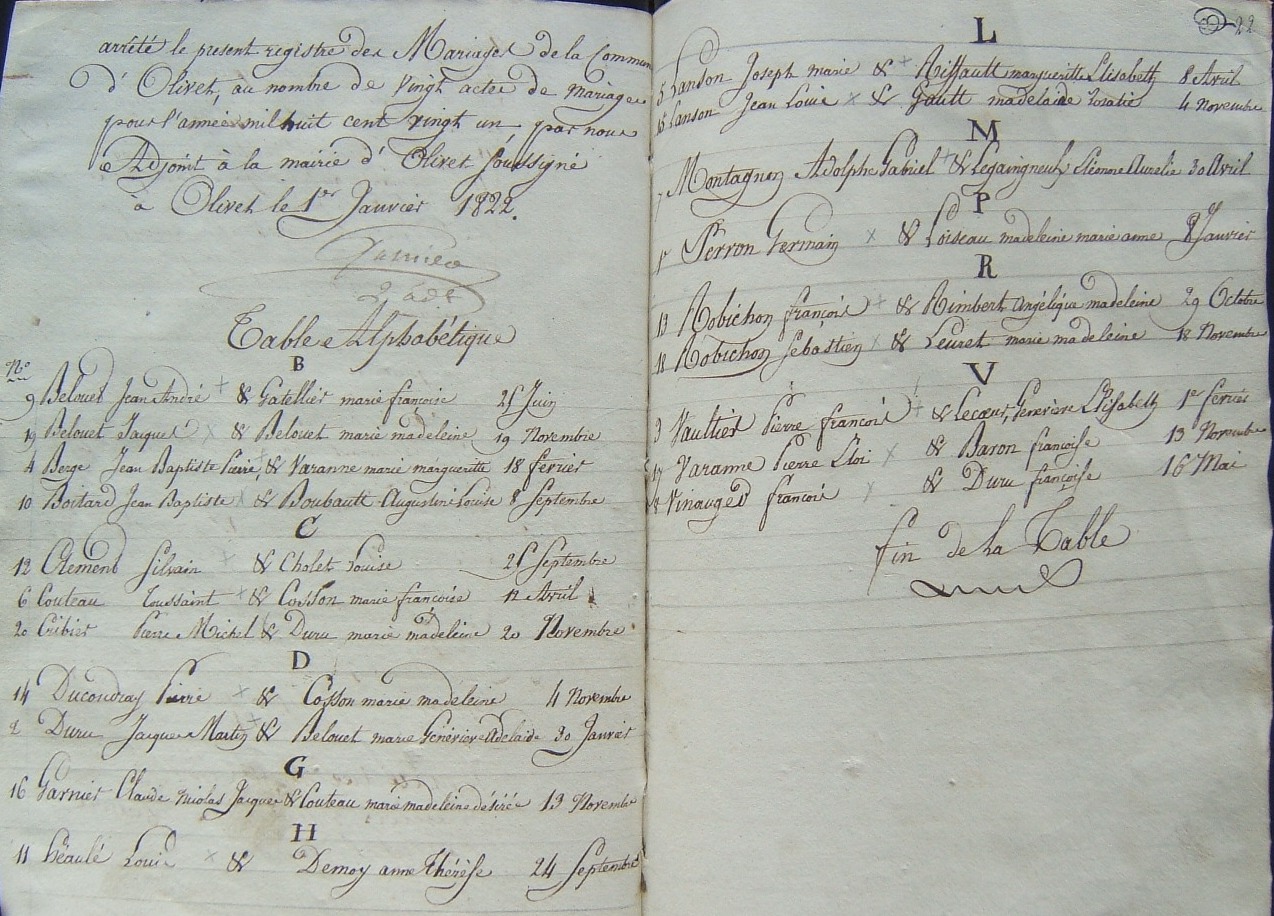 arrêté le present registre des Mariages de la Commun
d'Olivet, au nombre de vingt actes de mariages
pour l'année mil huit cent vingt un, par nous
Adjoint à la mairie d'Olivet soussigné
à Olivet le 1er Janvier 1822.
Table Alphabétique
Nos
B
9 Belouet Jean André + & Gatellier marie françoise 25 Juin
19 Belouet Jacques x & Belouet marie madeleine 19 Novembre
4 Berge Jean Baptiste Pierre + & Varanne marie marguerite 18 fevrier
10 Boitard Jean Baptiste x & Boubault Augustine Louise 8 Septembre
C
12 Clement Silvain + & Cholet Louise 25 Septembre
6 Couteau Toussaint x & Cosson marie françoise 11 Avril
20 Cribier Pierre Michel & Duru marie madeleine 20 Novembre
D
14 Ducoudray Pierre x & Cosson marie madeleine 4 Novembre
2 Duru Jacques Martin + & Belouet marie Genevieve Adelaide 30 Janvier
G
16 Garnier Claude Nicolas Jacques & Couteau marie madeleine désirée 13 Novembre
H
11 héaulé Louis x & Demoy anne thérèse 24 Septembre
22
L
5 Landon Joseph marie & + Riffault marguerite Elisabeth 8 Avril
15 Lanson Jean Louis x & Gault madelaide rosalie 4 Novembre
M
7 Montagnon Adolphe Gabriel + & Legaingneulx Eléonne Aurelie 30 Avril
P
1er Perron Germain x & Loiseau madeleine marie anne 8 Janvier
R
13 Robichon françois + & Rimbert angélique madeleine 29 Octobre
18 Robichon Sébastien x & Leuret marie madeleine 18 Novembre
V
3 Vaultier Pierre françois + & Lecœur Genevieve Elisabeth 1er fevrier
17 Varanne Pierre Eloi x & Baron françoise 13 Novembre
8 Vinauger françois x & Duru françoise 16 Mai
fin de la Table